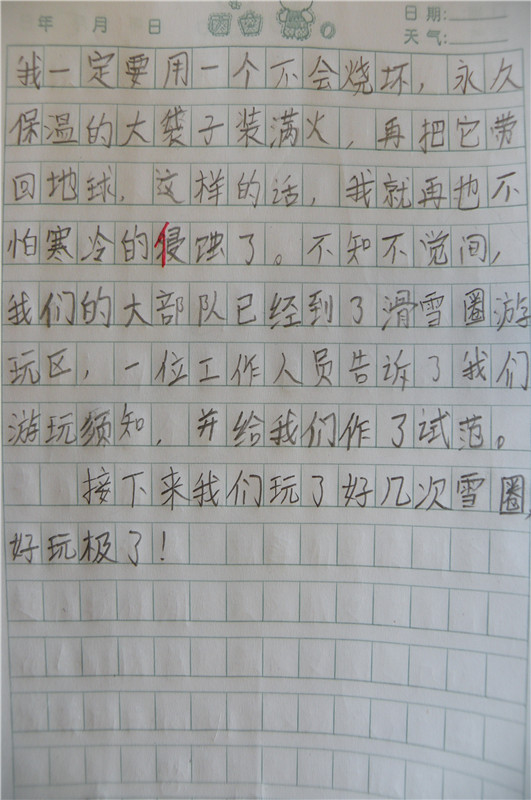 年 月 日
日期:
天气:
我一定要用一个不会烧坏，永久
保温的大袋子装满火，再把它带
回地球，这样的话，我就再也不
怕寒冷的侵蚀了。不知不觉间，
我们的大部队已经到了滑雪圈游
玩区，一位工作人员告诉了我们
游玩须知，并给我们作了试范。
接下来我们玩了好几次雪圈，
好玩极了！